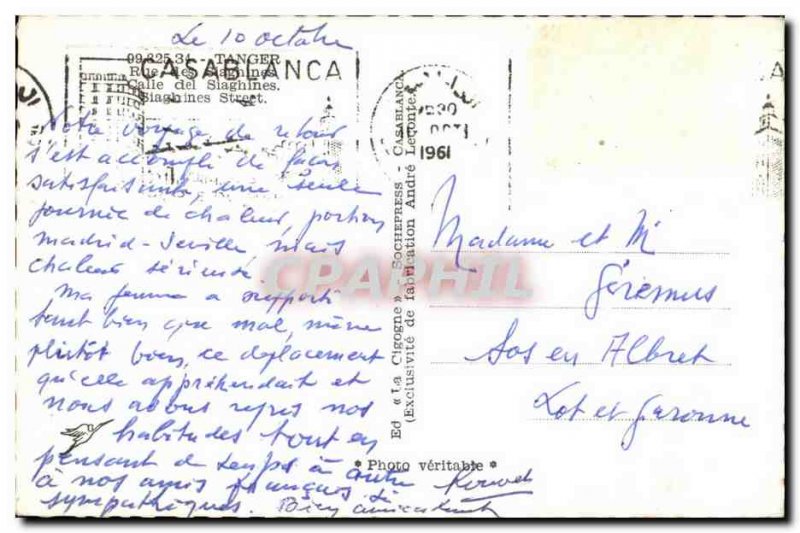 Le 10 octobre
99.325.34 - TANGER
Rue des Siaghines
Calle del Siaghines.
Siaghines Street.
CASABLANCA
1961
Notre voyage de retour
s'est accompli de façon
satisfaisante, une seule
journée de chaleur, portion
madrid-Seville mais
chaleur
Ma femme a supporté
tant bien que mal, même
plutôt bien, ce déplacement
qu'elle appréhendait et
nous avons repris nos
habitudes tout en
pensant de temps à autre
à nos amis français si
sympathiques. Bien amicalement
Ed « La Cigogne » - SOCHEPRESS - CASABLANCA
(Exclusivité de fabrication André Leconte)
* Photo véritable *
Madame et Mr
Sos en Albret
Lot et Garonne
CPAPHIL